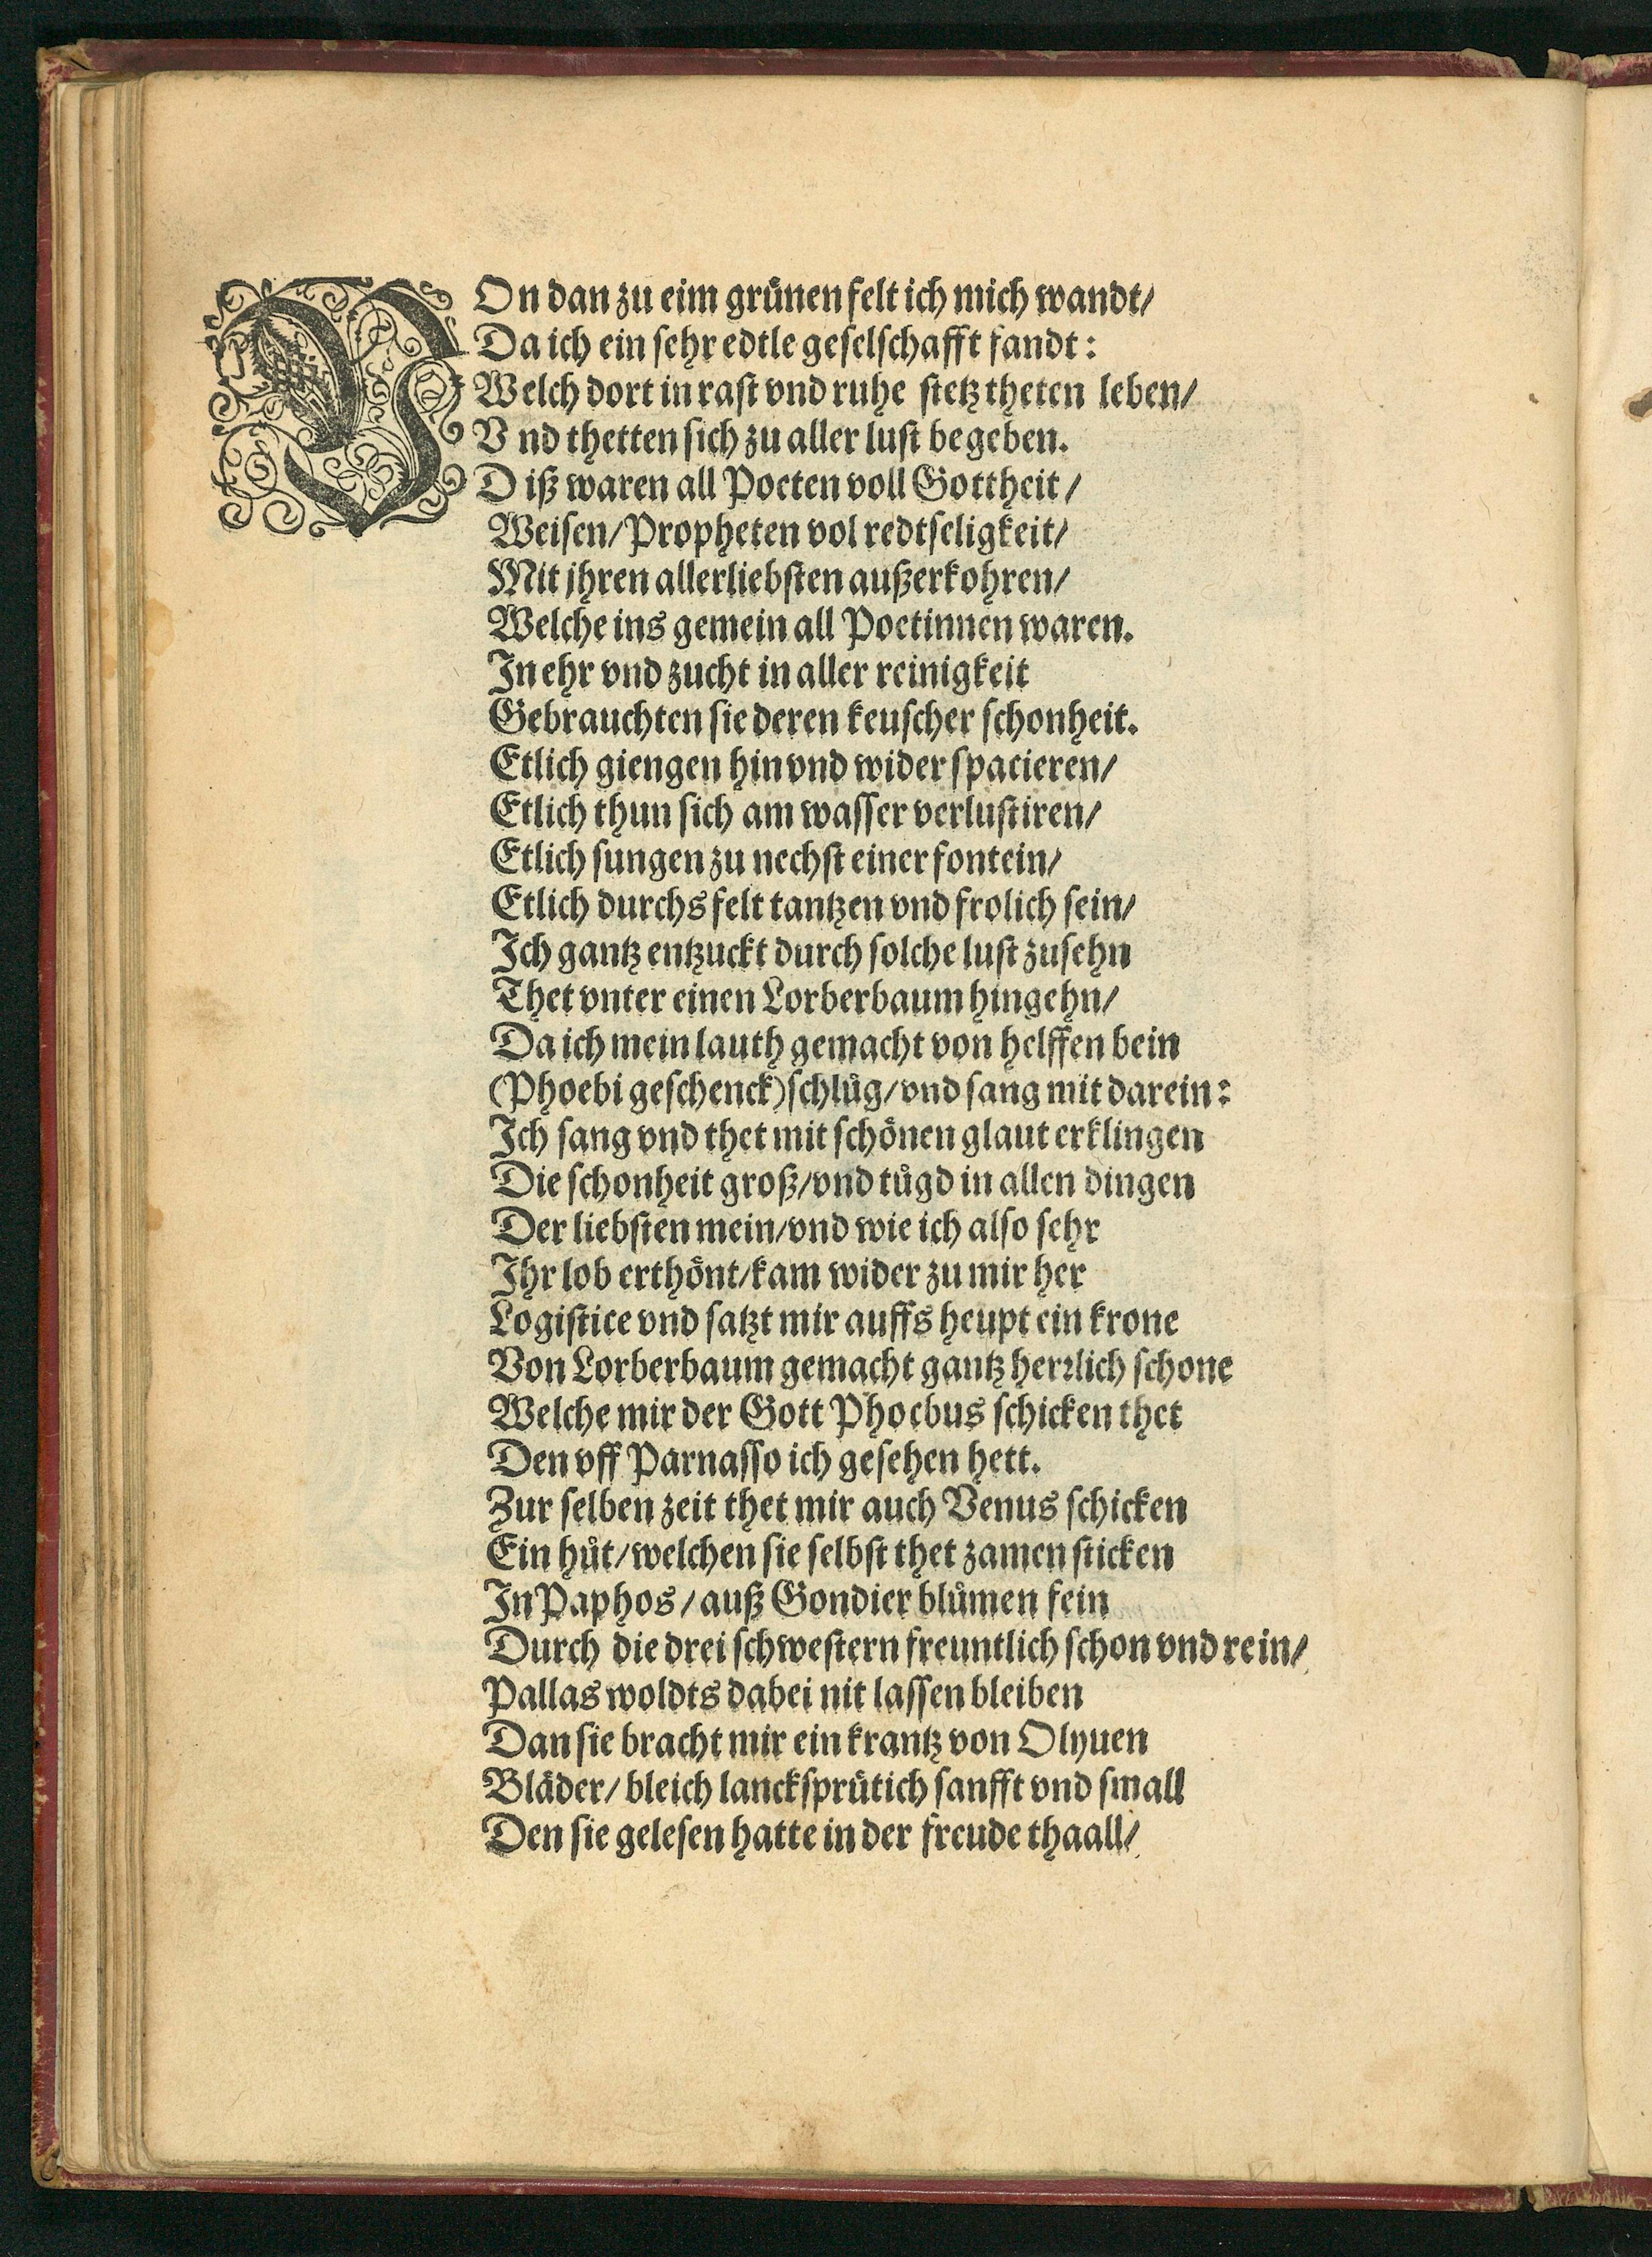 VOn dan zu eim grünen felt ich mich wandt/
Da ich ein sehr edtle geselschafft fandt:
Welch dort in rast vnd ruhe stetz theten leben/
Vnd thetten sich zu aller lust begeben.
Diß waren all Poeten voll Gottheit/
Weisen/Propheten vol redtseligkeit/
Mit jhren allerliebsten außerkohren/
Welche ins gemein all Poetinnen waren.
In ehr vnd zucht in aller reinigkeit
Gebrauchten sie deren keuscher schonheit.
Etlich giengen hin vnd wider spacieren/
Etlich thun sich am wasser verlustiren/
Etlich sungen zu nechst einer fontein/
Etlich durchs felt tantzen vnd frolich sein/
Ich gantz entzuckt durch solche lust zusehn
Thet vnter einen Lorberbaum hingehn/
Da ich mein lauth gemacht von helffen bein
(Phoebi geschenck) schlůg/vnd sang mit darein:
Ich sang vnd thet mit schönen glaut erklingen
Die schonheit groß/vnd tůgd in allen dingen
Der liebsten mein/vnd wie ich also sehr
Ihr lob erthönt/kam wider zu mir her
Logistice vnd satzt mir auffs heupt ein krone
Von Lorberbaum gemacht gantz herrlich schone
Welche mir der Gott Phoebus schicken thet
Den vff Parnasso ich gesehen hett.
Zur selben zeit thet mir auch Venus schicken
Ein hůt/welchen sie selbst thet zamen sticken
In Paphos/auß Gondier blůmen fein
Durch die drei schwestern freuntlich schon vnd rein/
Pallas woldts dabei nit lassen bleiben
Dan sie bracht mir ein krantz von Olyuen
Bläder/bleich lancksprütich sanfft vnd small
Den sie gelesen hatte in der freude thaall/